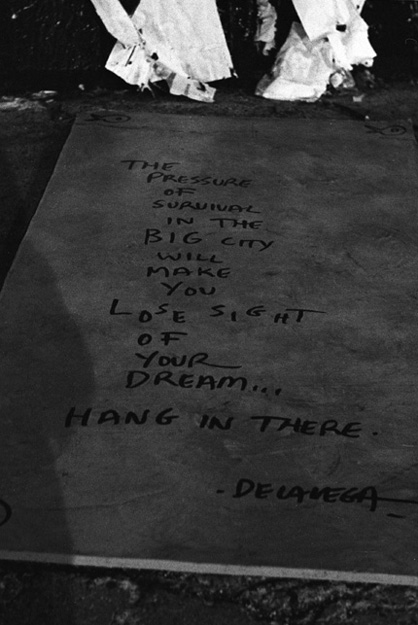 THE
PRESSURE
OF
SURVIVAL
IN THE
BIG CITY
WILL
MAKE
YOU
LOSE SIGHT
OF
YOUR
DREAM...
HANG IN THERE.
- DE LA VEGA -